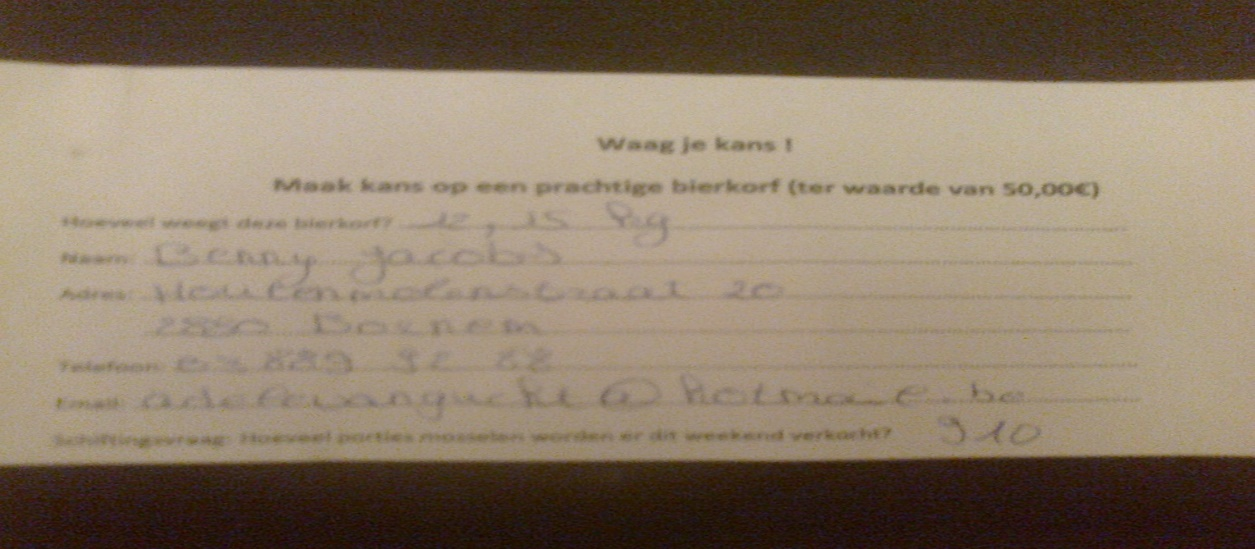 Waag je kans !
Maak kans op een prachtige bierkorf (ter waarde van 50,00€)
Hoeveel weegt deze bierkorf? 12,15 kg
Naam: Benny Jacobs
Adres: Houtenmolenstraat 20
2880 Bornem
Telefoon: 03 889
Email:
Schiftingsvraag: Hoeveel porties mosselen worden er dit weekend verkocht? 910